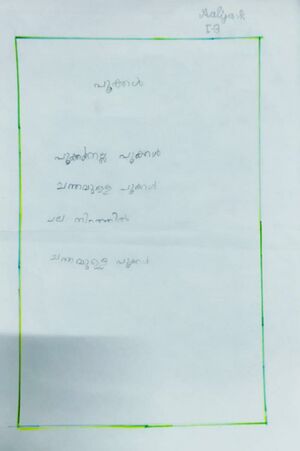 Aalya.k
I-B
പൂക്കൾ
പൂക്കൾനല്ല പൂക്കൾ
ചന്തമുള്ള പൂക്കൾ
പല നിറത്തിൽ
ചന്തമുള്ള പൂക്കൾ